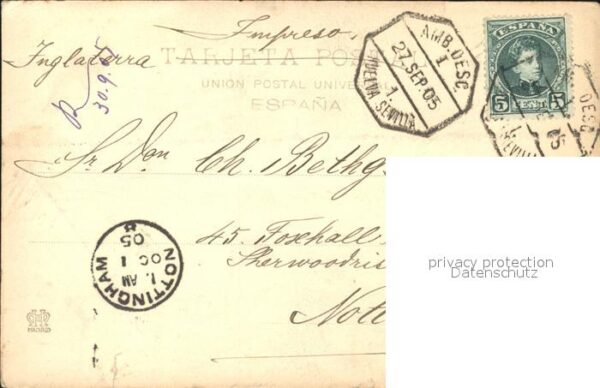 Impreso,
Inglaterra
30.9.05
TARJETA POSTAL
UNION POSTAL UNIVERSAL
ESPAÑA
AMB. DESC.
1
27 SEP 05
1
HUELVA SEVILLA
ESPAÑA
5 CENT 5
DESC
SEVILLA
Sr. Don Ch. Bethg
45. Foxhall
Sherwoodris
Nott
NOTTINGHAM
1. AM
OC 1
05
8
MADRID
privacy protection
Datenschutz